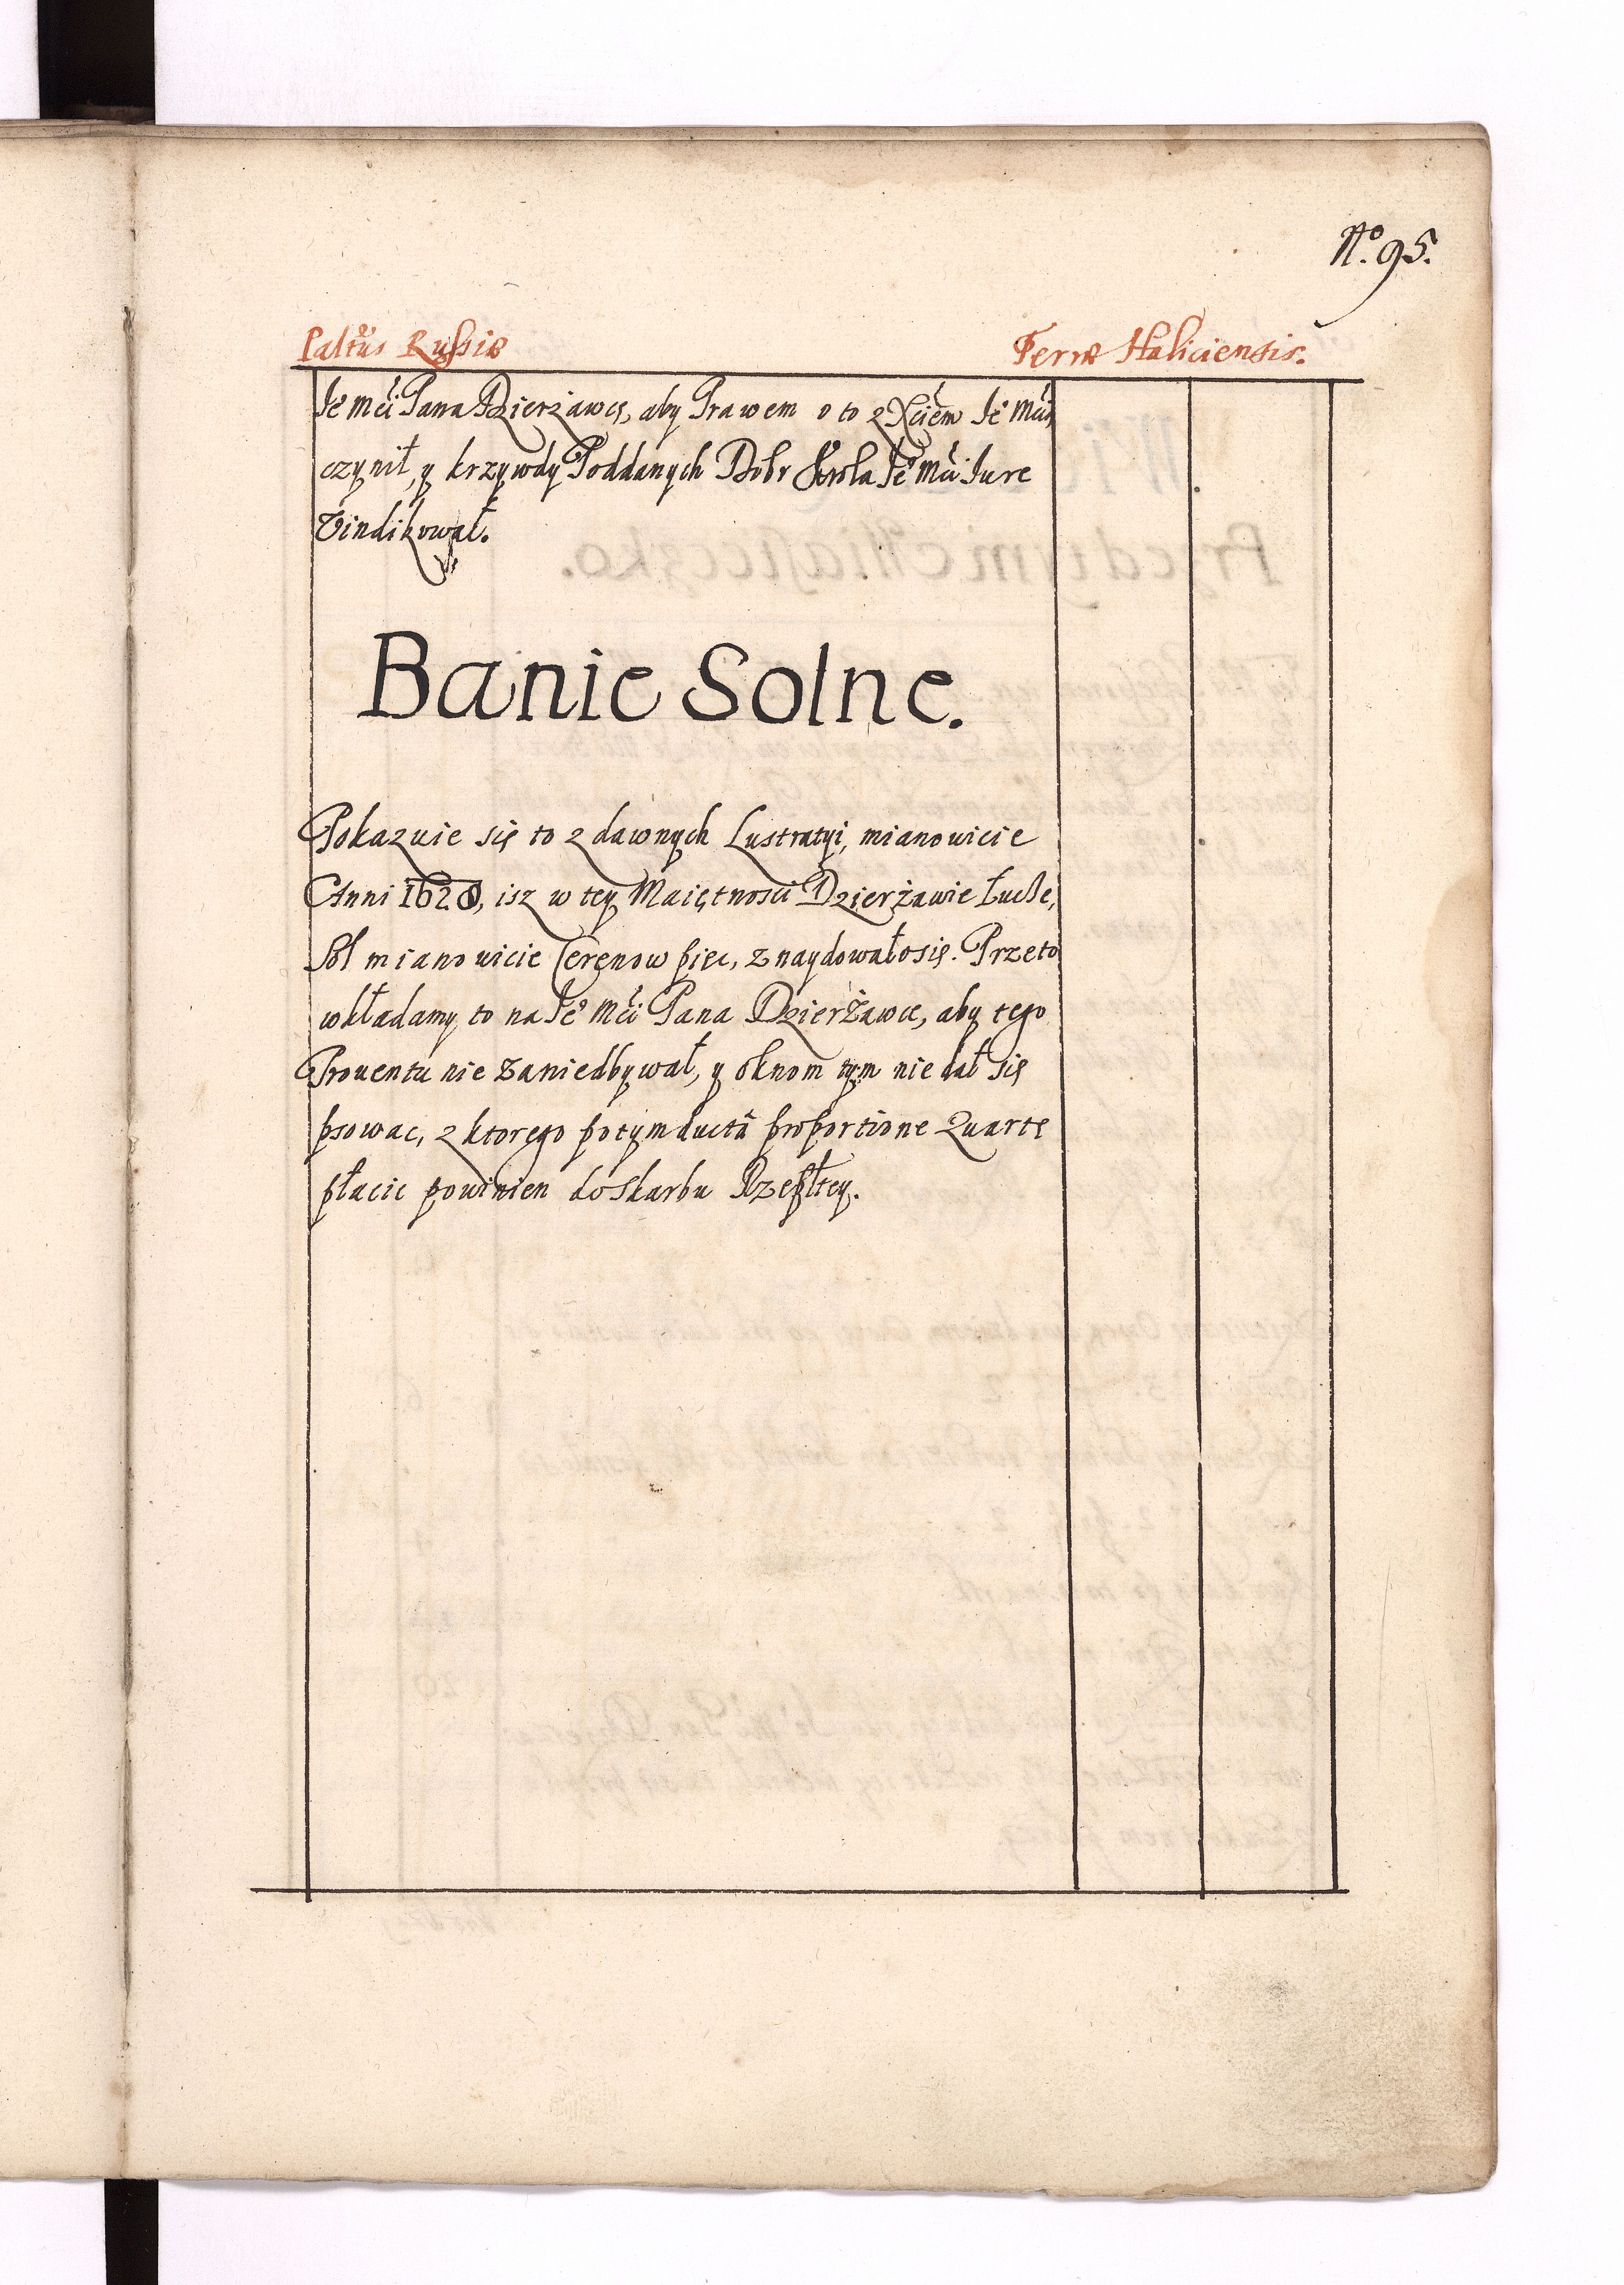 No. 95.
Paltus Russiæ Terræ Haliciensis.
Je° Mći Pana Dzierżawcę, aby Prawem o to z Xciem Je° Mći,
czynił, y krzywdy Poddanych Dobr Krola Je° Mći Jure
Vindikował.
Banie Solne.
Pokazuie się to z dawnych Lustratyi, mianowicie
Anni 1628, isz w tey Maiętnosci Dzierżawie Łucke,
Sol mianowicie Cerenow pięc, znaydowało się. Przeto
wkładamy to na Je° Mći Pana Dzierżawce, aby tego
Prouentu nie zaniedbywał, y oknom tym nie dał się
psowac, z ktorego potym ductâ proportione Quartę
płacic powinien do Skarbu Rzepłtey.